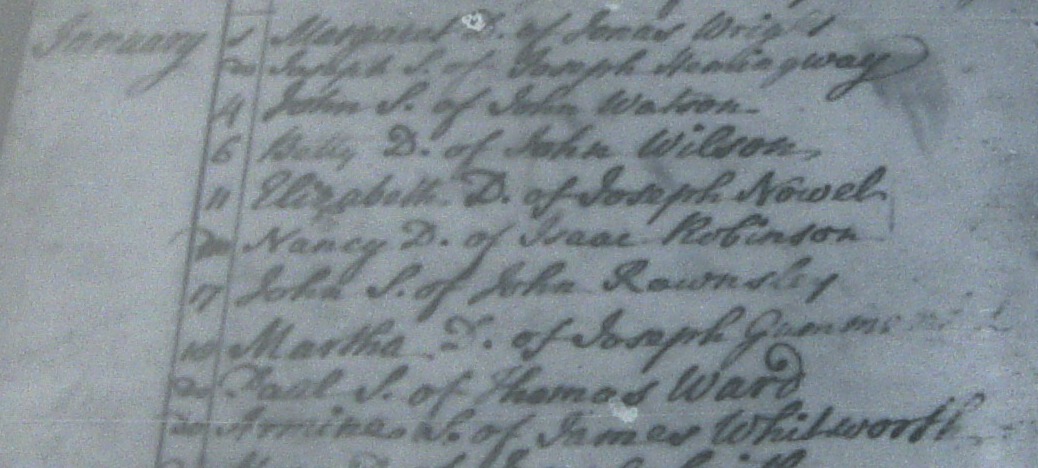 January 1 Margaret D. of Jonas Wright
do Joseph S. of Joseph Hemingway
4 John S. of John Watson
6 Betty D. of John Wilson
11 Elizabeth D. of Joseph Nowel
do Nancy D. of Isaac Robinson
17 John S. of John Rownsley
18 Martha D. of Joseph
do Paul S. of Thomas Ward
of James Whitworth
of Joseph